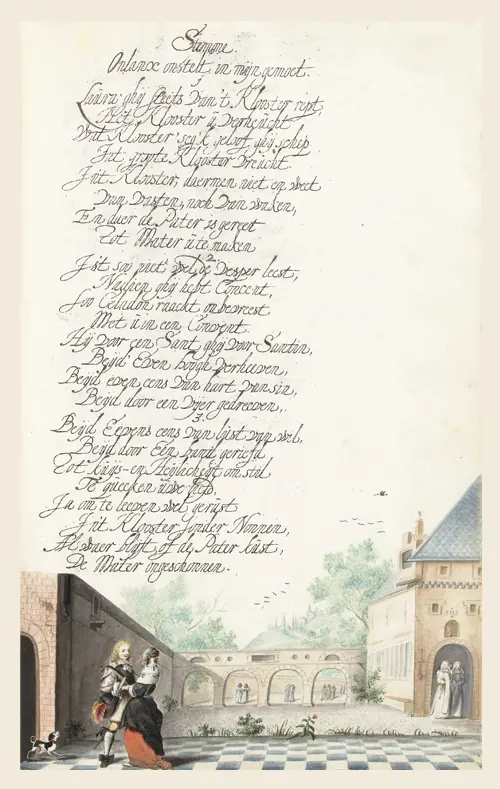 Stemme.
Onlancx onstelt in mijn gemoet.
1
Laura ghij steets van 't Klooster rept,
Het Klooster u verheucht
Wat Klooster seg'k geloof ghij schip
Int groote Klooster vreucht.
Int Klooster, daermen niet en weet
Van Vasten, noch van waken,
En daer de Pater is gereet
Tot Mater u te maken
2
Ist soo niet wel de Vesper leest,
Naghen ghij hebt Concent,
Soo Celadon raackt onbevreest
Met u in een Convent.
Hij voor een Sant, ghij voor Santin,
Beijd' Even hoogh verheeven,
Beijd even eens van hart van sin,
Beijd door een vijer gedreeven,
3.
Beijd Eevens eens van lust van wil,
Beijd door Een hand gereefd
Tot kuijs- en Heijlicheijt om stil
Te queecken uwe
Ja om te leeven wel gerust
Int Klooster sonder Nonnen,
Al waer blijft of de Pater kust,
De Mater ongeschonnen.